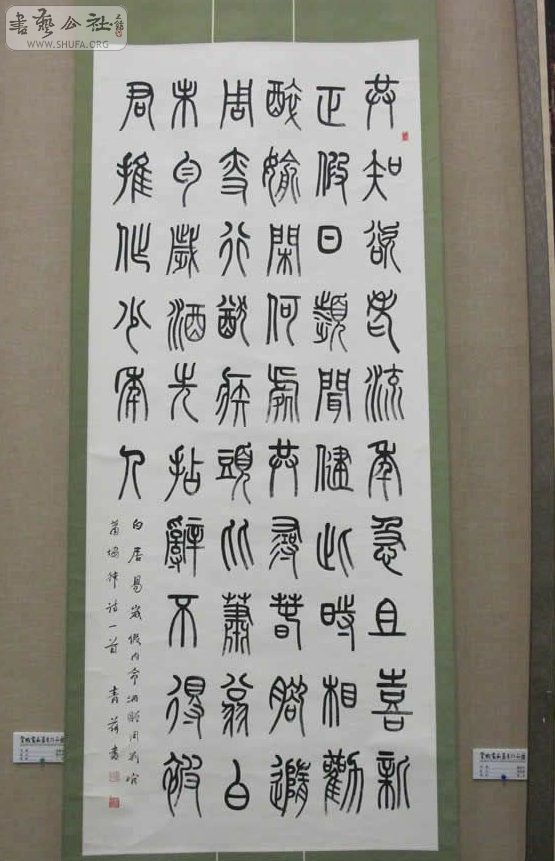 書藝公社
WWW.SHUFA.ORG
共知欲老流年急且喜新
正假日頻聞健此時相勸
醉媮閑何處共尋春腳隨
周叟行猶疾頭比蕭翁白
未勻歲酒先拈辭不得被
君推作少年人
白居易歲假內命酒贈周判官
蕭協律詩一首 青 書